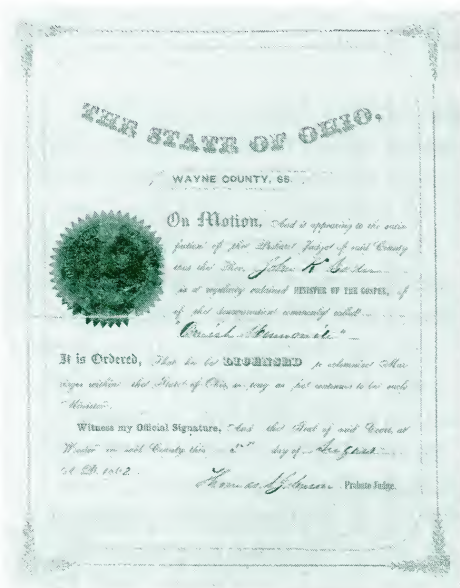 THE STATE OF OHIO,
WAYNE COUNTY, SS.
On Motion, And it appearing to the satis-
faction of the Probate Judge of said County
that the Rev. John K.
is a regularly ordained MINISTER OF THE GOSPEL, of
of the denomination commonly called
"Omish Mennonite"
It is Ordered, That he be LICENSED to solemnize Mar-
riages within the State of Ohio, so long as he continues to be such
Minister.
Witness my Official Signature, And the Seal of said Court, at
Wooster in said County this day of August
A. D.
Probate Judge.